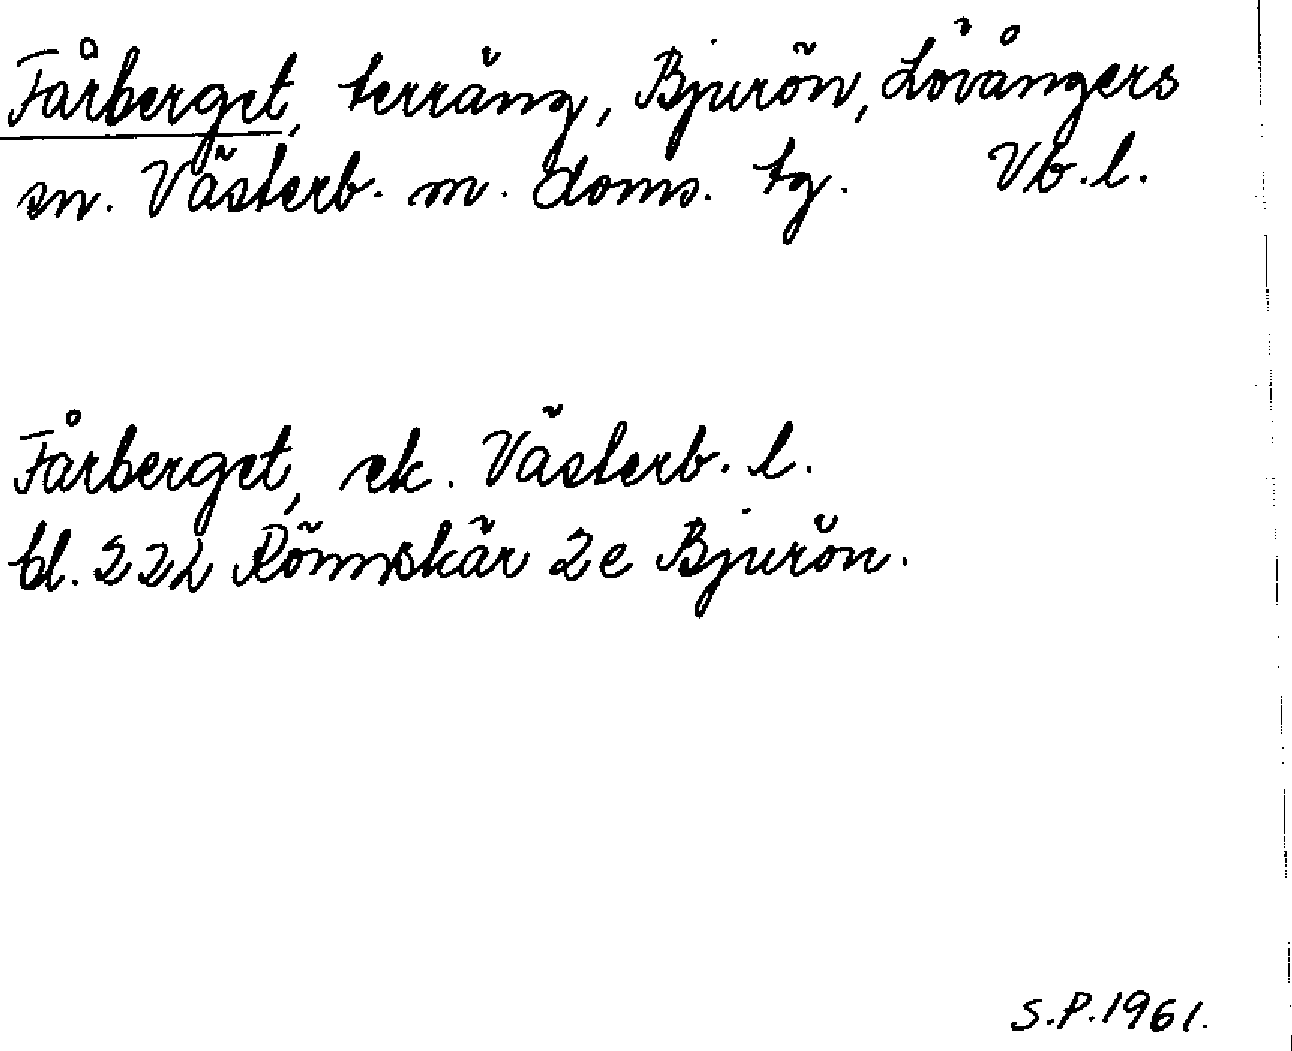 Fårberget, terräng, Bjurön, Lövångers
sn. Västerb. m. doms. tg. Vb.l.
Fårberget, ek. Västerb. l.
bl. 222 Rönnskär 2e Bjurön.
S.P.1961.